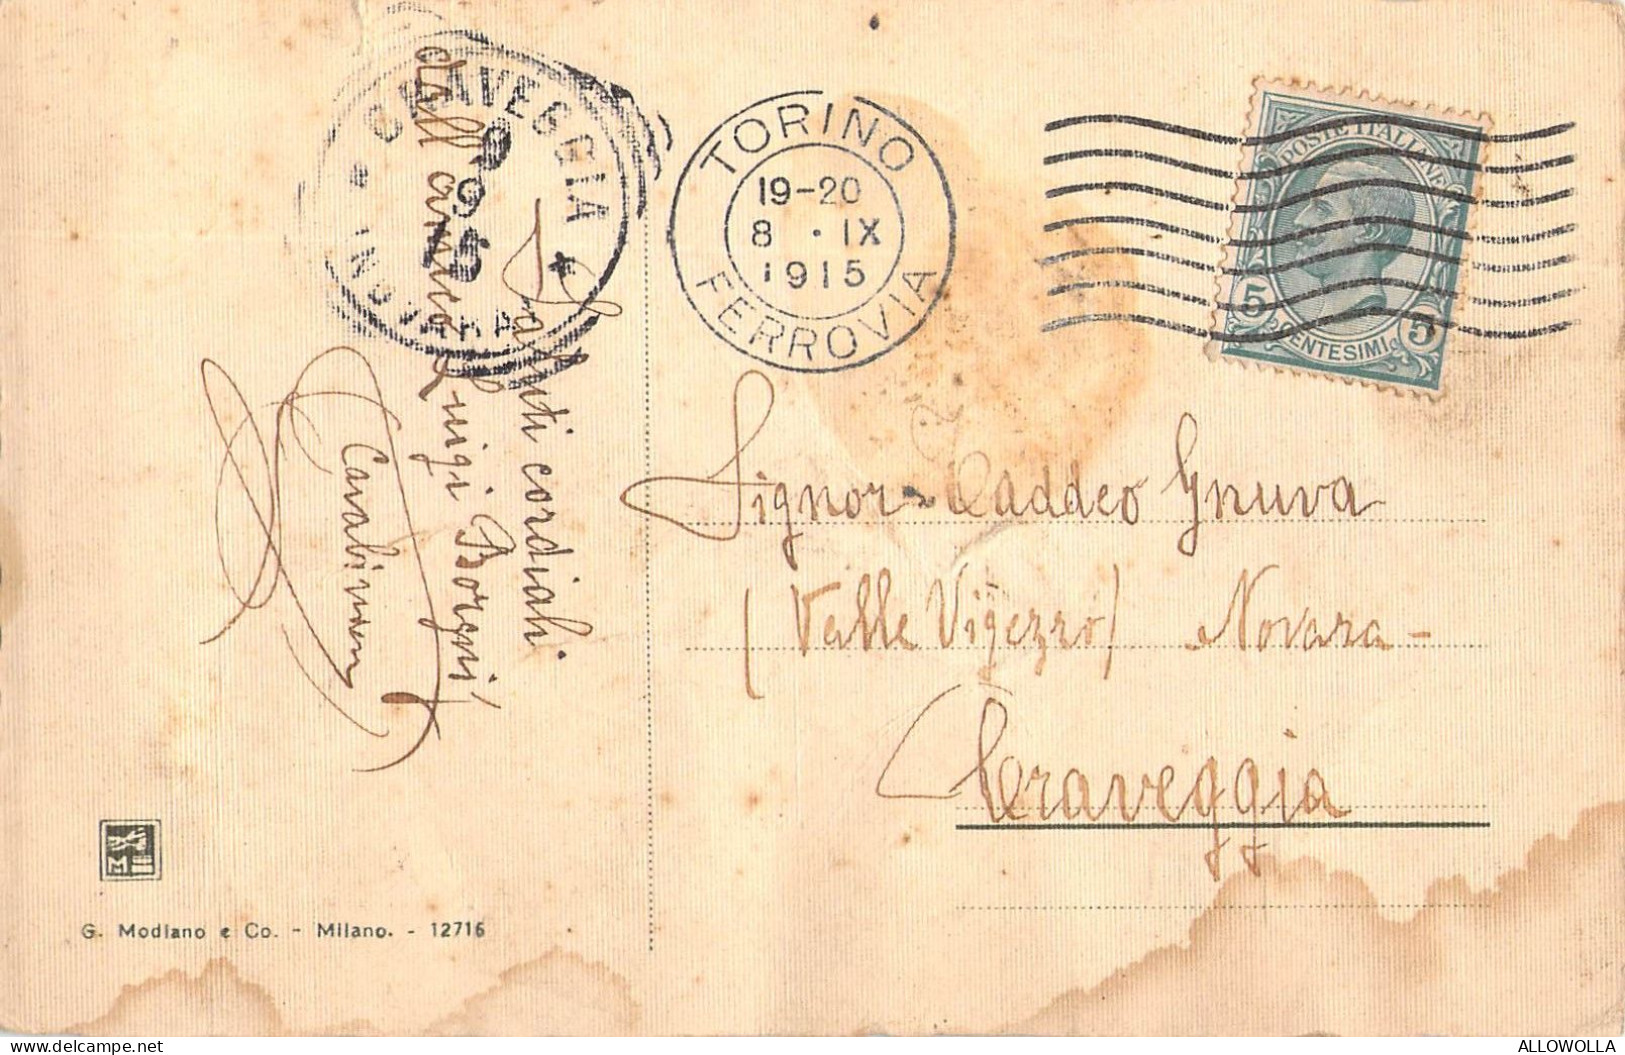 CRAVEGGIA
9
9
15
NOVARA
TORINO
19-20
8 · IX
1915
FERROVIA
POSTE ITALIANE
5 5
CENTESIMI
Saluti cordiali.
dall'amico
Luigi Borgni
Signor Taddeo Gnuva
(Valle Vigezzo) Novara -
Craveggia
M
G. Modiano e Co. - Milano. - 12716
ALLOWOLLA